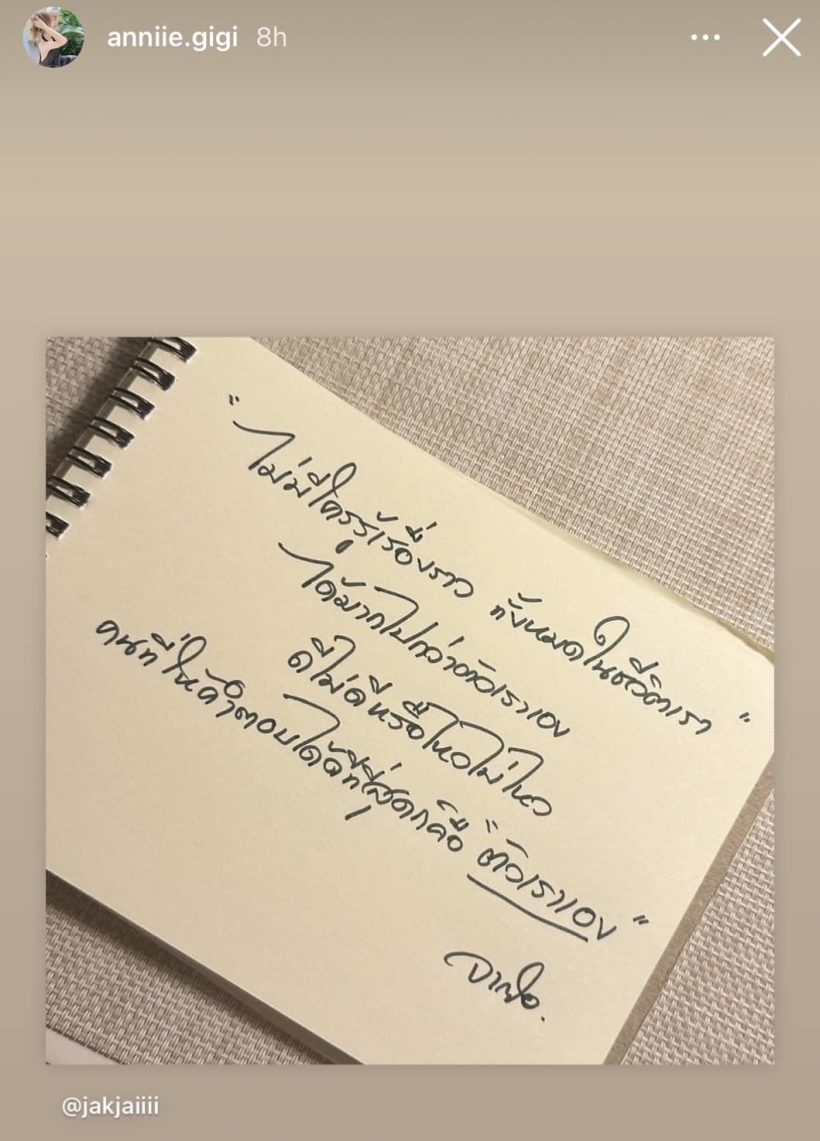 anniie.gigi 8h
"ไม่มีใครรู้เรื่องราว ทั้งหมดในชีวิตเรา"
ได้มากไปกว่าตัวเราเอง
ดีไม่ดีหรือไหวไม่ไหว
คนที่ให้คำตอบได้ดีที่สุดก็คือ "ตัวเราเอง"
@jakjaiiii